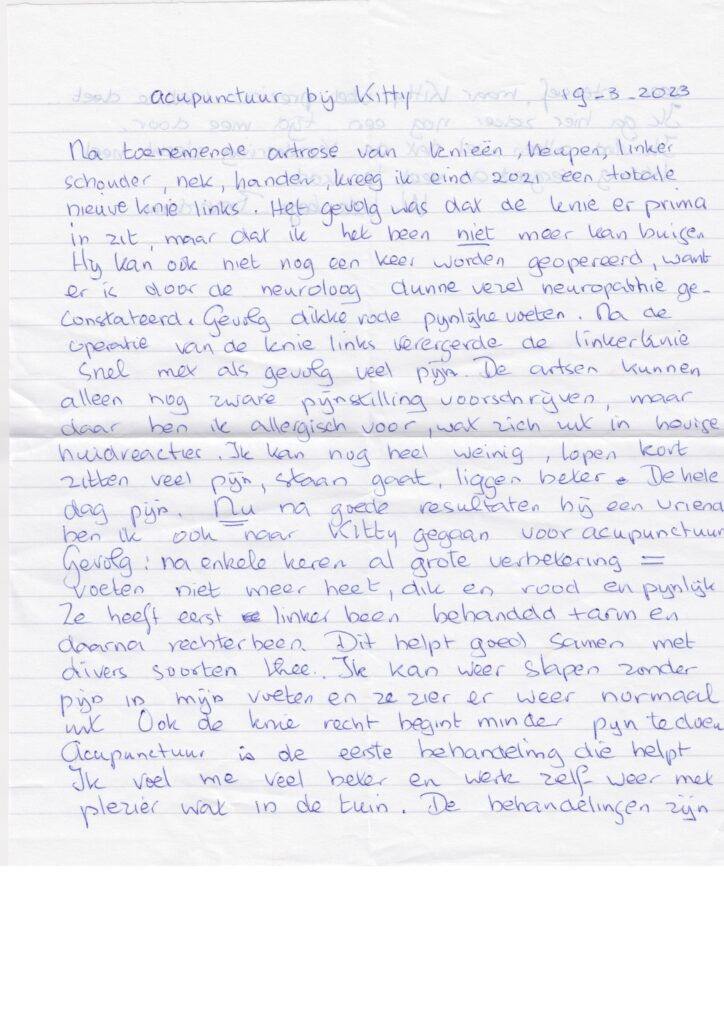 acupunctuur bij Kitty 19-3-2023
Na toenemende artrose van knieën, heupen, linker
schouder, nek, handen, kreeg ik eind 2021 een totale
nieuwe knie links. Het gevolg was dat de knie er prima
in zit, maar dat ik het been niet meer kan buigen
Hy kan ook niet nog een keer worden geopereerd, want
er is door de neuroloog dunne vezel neuropathie ge-
constateerd. Gevolg dikke rode pynlijke voeten. Na de
operatie van de knie links verergerde de linkerknie
snel met als gevolg veel pijn. De artsen kunnen
alleen nog zware pijnstilling voorschrijven, maar
daar ben ik allergisch voor, wat zich uit in hevige
huidreacties. Ik kan nog heel weinig, lopen kort
zitten veel pijn, staan gaat, liggen beter. De hele
dag pijn. Nu na goede resultaten bij een vriend
ben ik ook naar Kitty gegaan voor acupunctuur
Gevolg: na enkele keren al grote verbetering =
voeten niet meer heet, dik en rood en pynlijk
Ze heeft eerst linker been behandeld + arm en
daarna rechterbeen. Dit helpt goed samen met
divers soorten thee. Ik kan weer slapen zonder
pijn in mijn voeten en ze zier er weer normaal
uit Ook de knie recht begint minder pyn te doen
Acupunctuur is de eerste behandeling die helpt
Ik voel me veel beter en werk zelf weer met
plezier wat in de tuin. De behandelingen zijn